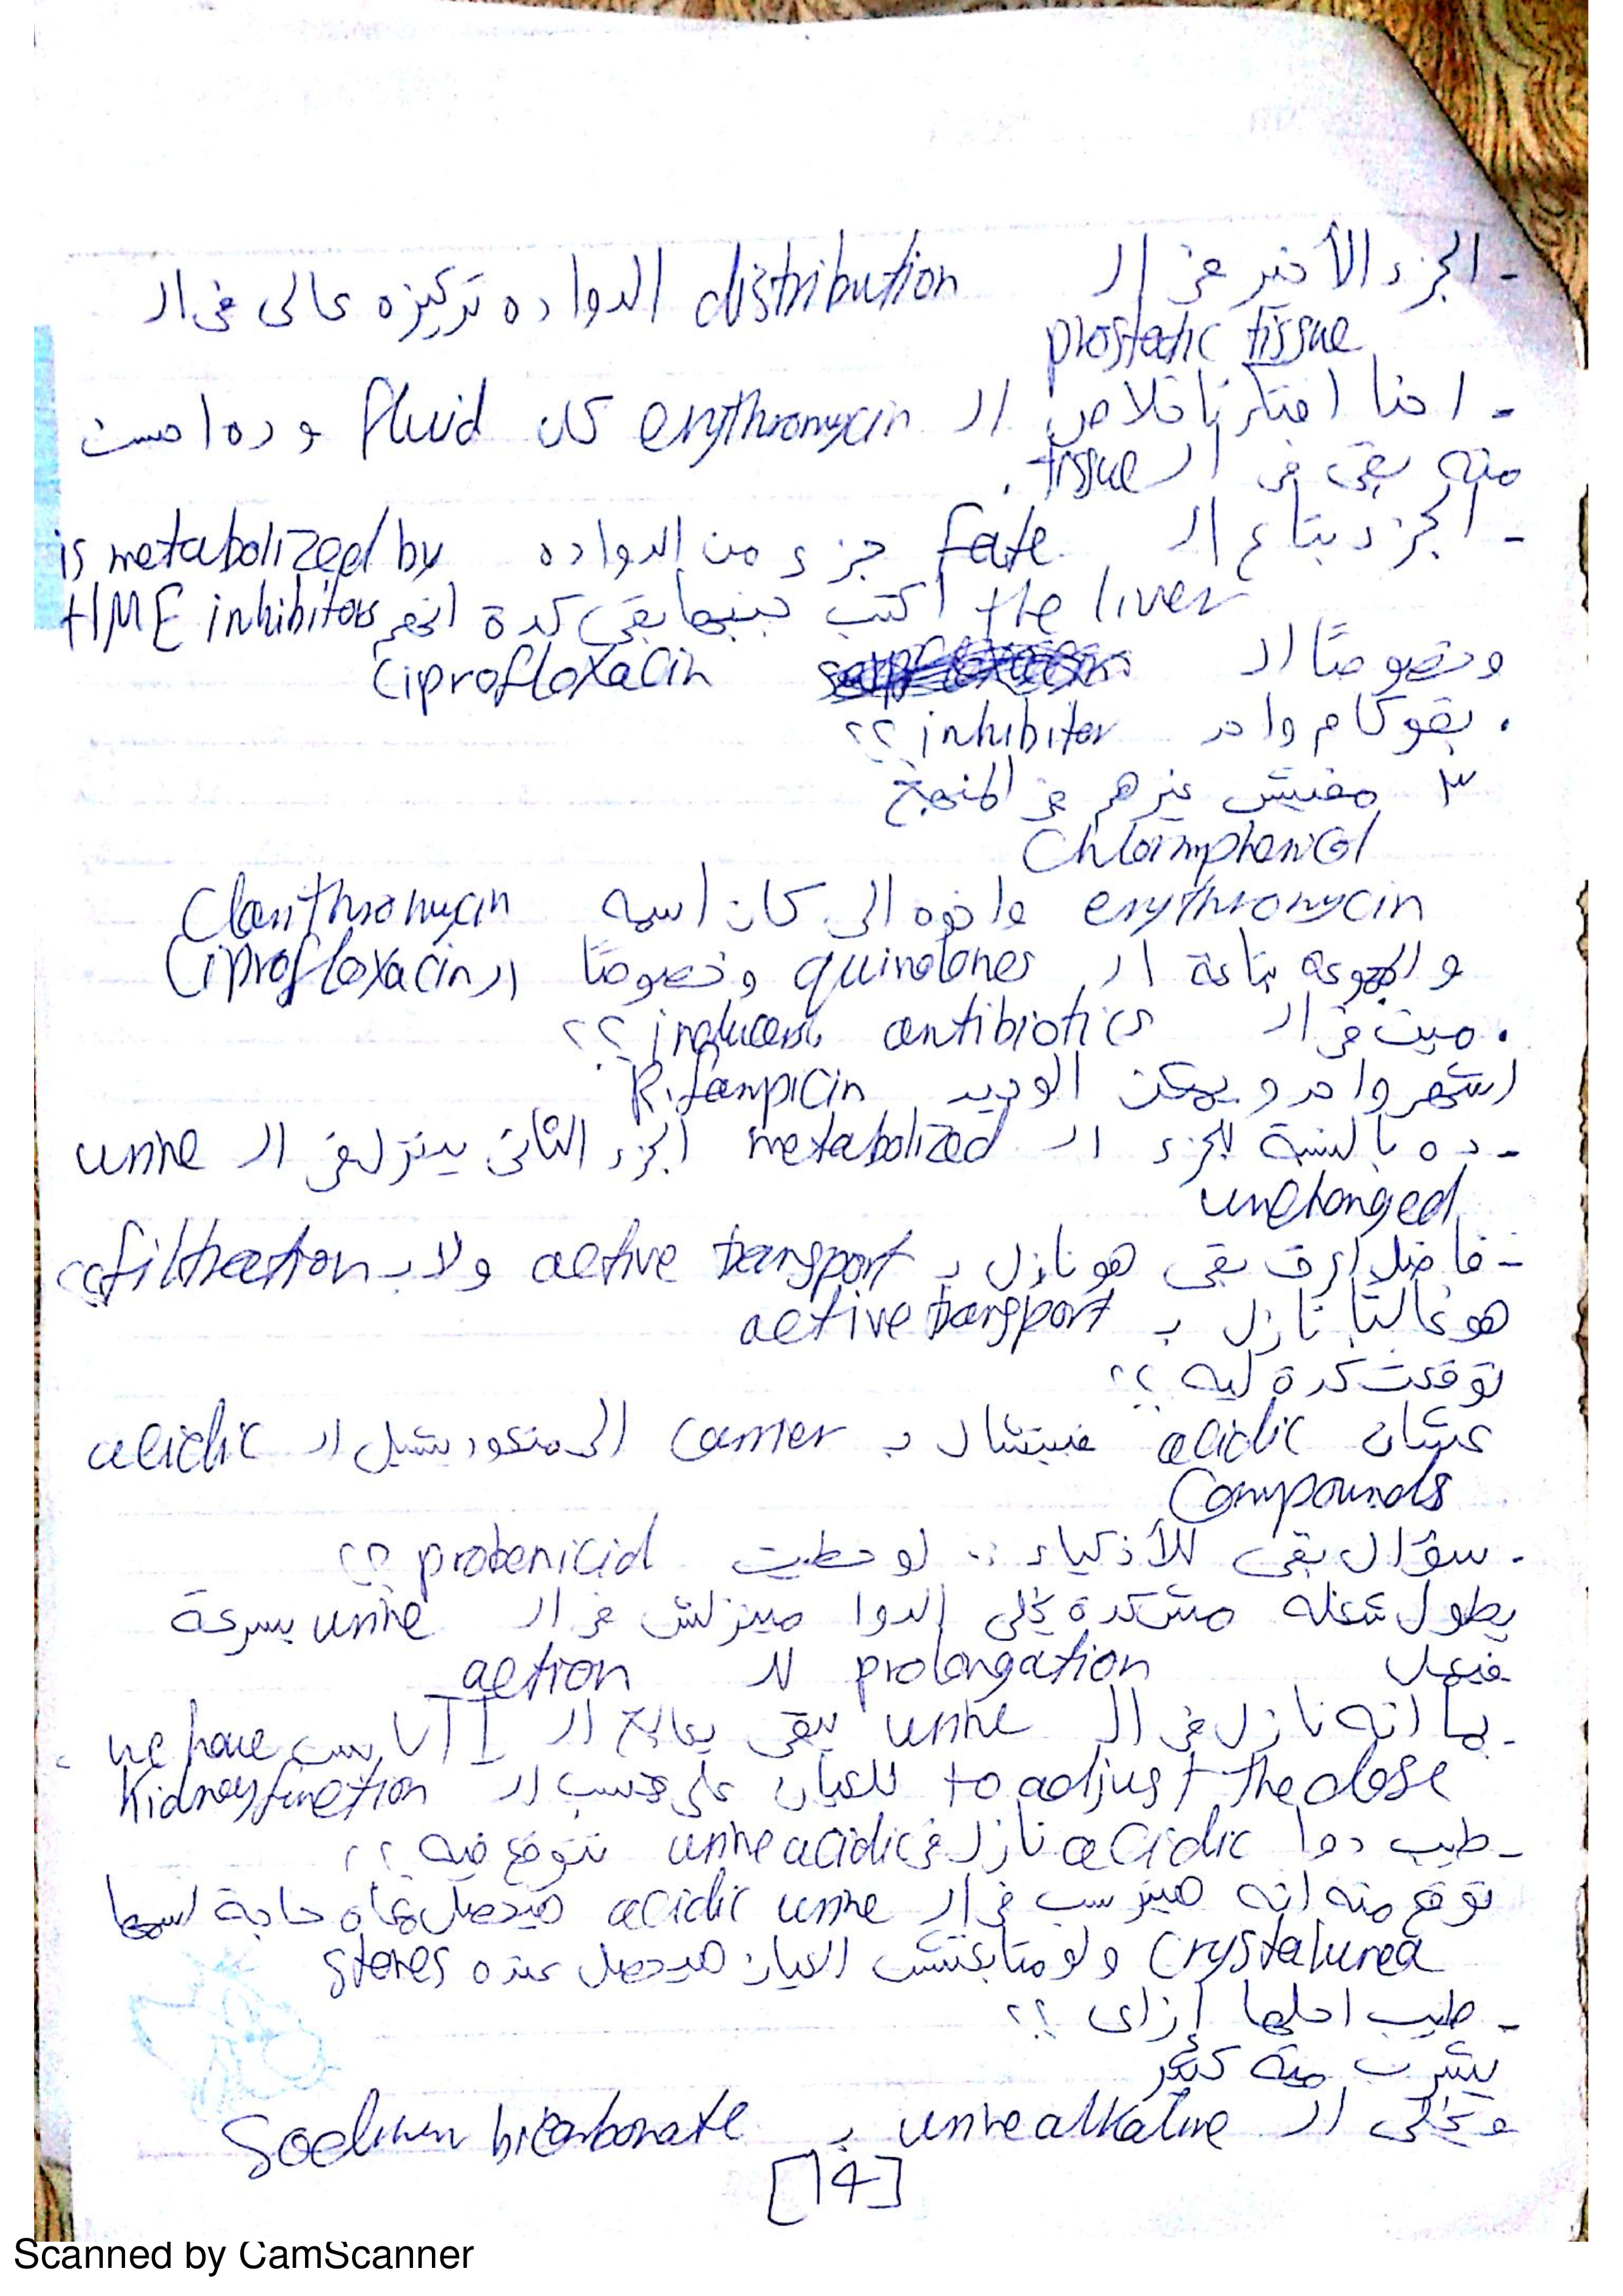 - الجزء الأخير فى ال distribution الدوا ده تركيزه عالى فى ال
prostatic tissue
- احنا افتكرنا خلاص ال erythromycin كان fluid و ده احسن
منه بقى فى ال tissue .
- الجزء بتاع ال fate جزء من الدوا ده is metabolized by
the liver اكتب جنبها بقى كدة انهم HME inhibitors
وخصوصًا ال ciprofloxacin
. بقو كام واحد inhibitor ؟؟
٣ مفيش غيرهم فى المنهج
Chloramphenicol
erythromycin واخوه الى كان اسمه Clarithromycin
و المجموعه بتاعة ال quinolones وخصوصًا ال Ciprofloxacin
. مين فى ال antibiotics inducers ؟؟
اشهر واحد و يمكن الوحيد Rifampicin
- ده بالنسبة للجزء ال metabolized الجزء التانى بينزل فى ال urine
unchanged
- فاضل اعرف بقى هو نازل ب active transport ولا ب filtration ؟؟
هو غالبًا نازل ب active transport
توقعت كدة ليه ؟؟
عشان acidic فبيتشال ب carrier الى متعود يشيل ال acidic
Compounds
. سؤال بقى للأذكياء : لو حطيت probenicid ؟؟
يطول شغله مش كدة يخلى الدوا مينزلش فى ال urine بسرعة
فيعمل prolongation لل action
- بما انه نازل فى ال urine يبقى يعالج ال UTI بس we have
to adjust the dose للعيان على حسب ال Kidney function
- طيب دوا acidic نازل فى urine acidic نتوقع فيه ؟؟
نتوقع منه انه هيترسب فى ال acidic urine هيحصل معاه حاجة اسمها
Crystalurea و لو متابعتش العيان هيحصل عنده stones
- طيب احلها إزاى ؟؟
يشرب ميه كتير
و يخلى ال urine alkaline ب Sodium bicarbonate
[14]
Scanned by CamScanner